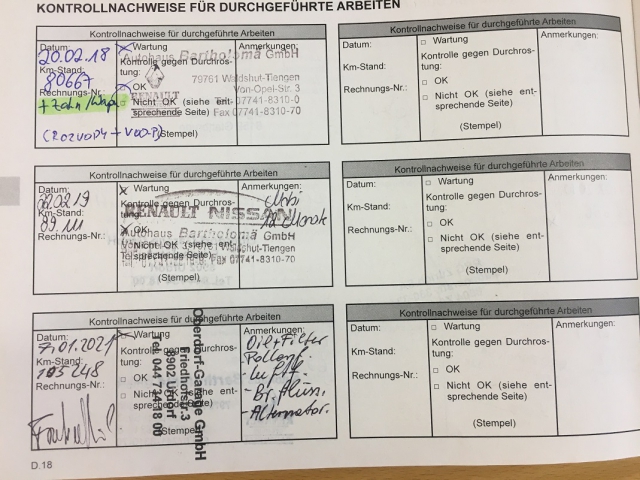 KONTROLLNACHWEISE FÜR DURCHGEFÜHRTE ARBEITEN
Kontrollnachweise für durchgeführte Arbeiten
Datum:
20.02.18
Km-Stand:
80667
Rechnungs-Nr.:
+ Zahn/Wapu
(ROZVODY + VODP)
Wartung
Kontrolle gegen Durchros-
tung:
OK
Nicht OK (siehe ent-
sprechende Seite)
(Stempel)
Anmerkungen:
Autohaus Bartholomä GmbH
79761 Waldshut-Tiengen
Von-Opel-Str. 3
07741-8310-0
Fax 07741-8310-70
RENAULT
Kontrollnachweise für durchgeführte Arbeiten
Datum:
Km-Stand:
Rechnungs-Nr.:
Wartung
Kontrolle gegen Durchros-
tung:
OK
Nicht OK (siehe ent-
sprechende Seite)
(Stempel)
Anmerkungen:
Kontrollnachweise für durchgeführte Arbeiten
Datum:
Km-Stand:
89.111
Rechnungs-Nr.:
Wartung
Kontrolle gegen Durchros-
tung:
OK
Nicht OK (siehe ent-
sprechende Seite)
(Stempel)
Anmerkungen:
RENAULT NISSAN
Autohaus Bartholomä GmbH
79761 Waldshut-Tiengen
Fax 07741-8310-70
Kontrollnachweise für durchgeführte Arbeiten
Datum:
Km-Stand:
Rechnungs-Nr.:
Wartung
Kontrolle gegen Durchros-
tung:
OK
Nicht OK (siehe ent-
sprechende Seite)
(Stempel)
Anmerkungen:
Kontrollnachweise für durchgeführte Arbeiten
Datum:
7.01.2021
Km-Stand:
105248
Rechnungs-Nr.:
Wartung
Kontrolle gegen Durchros-
tung:
OK
Nicht OK (siehe ent-
sprechende Seite)
(Stempel)
Oberdorf-Garage GmbH
Friedhofstr.3
8902 Urdorf
Tel. 044 734 18 00
Anmerkungen:
Oil + Filter
- Pollenf.
- Luftf.
- Br. flüss.
- Alternator.
Kontrollnachweise für durchgeführte Arbeiten
Datum:
Km-Stand:
Rechnungs-Nr.:
Wartung
Kontrolle gegen Durchros-
tung:
OK
Nicht OK (siehe ent-
sprechende Seite)
(Stempel)
Anmerkungen:
D.18